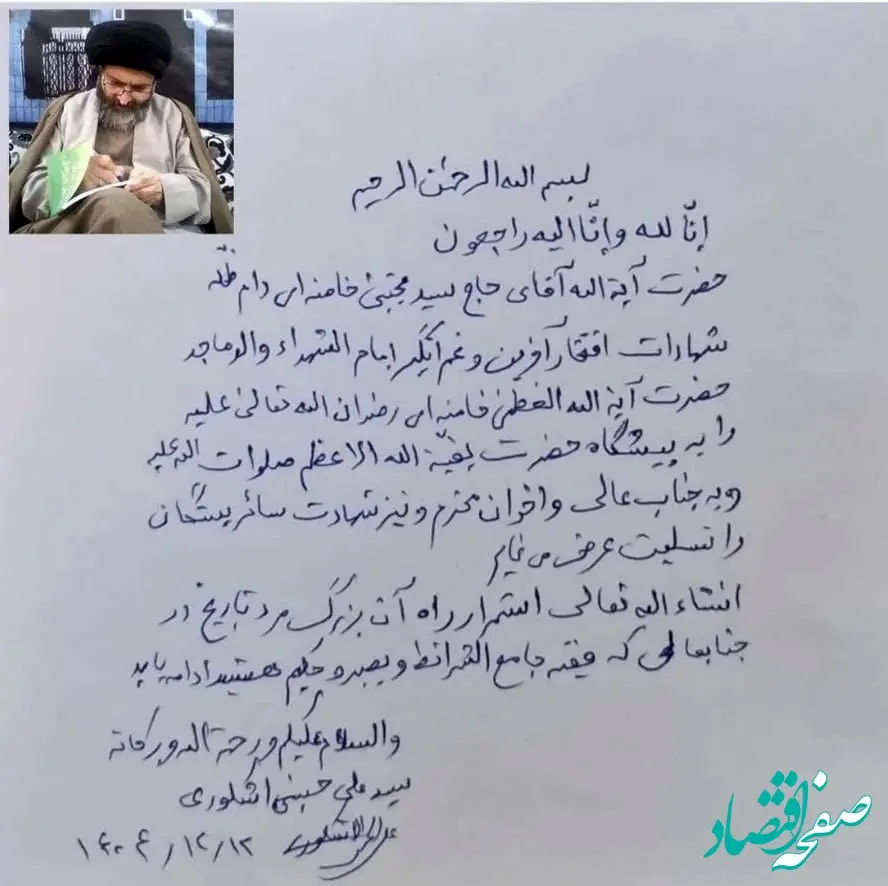 بسم الله الرحمن الرحیم
إنّا لله و إنّا الیه راجعون
حضرت آیة الله آقای حاج سید مجتبی خامنه ای دام ظلّه
شهادت افتخارآفرین و غم انگیز امام الشهداء والد ماجد
حضرت آیة الله العظمی خامنه ای رضوان الله تعالی علیه
را به پیشگاه حضرت بقیّة الله الاعظم صلوات الله علیه
و به جناب عالی و اخوان محترم و نیز شهادت سائر بستگان
را تسلیت عرض می نمایم
انشاء الله تعالی استمرار راه آن بزرگ مرد تاریخ در
جنابعالی که فقیه جامع الشرائط و بصیر و حکیم هستید ادامه یابد
والسلام علیکم و رحمة الله و برکاته
سید علی حسینی اشکوری
۱۴۰۴/۱۲/۱۲
صفحه اقتصاد